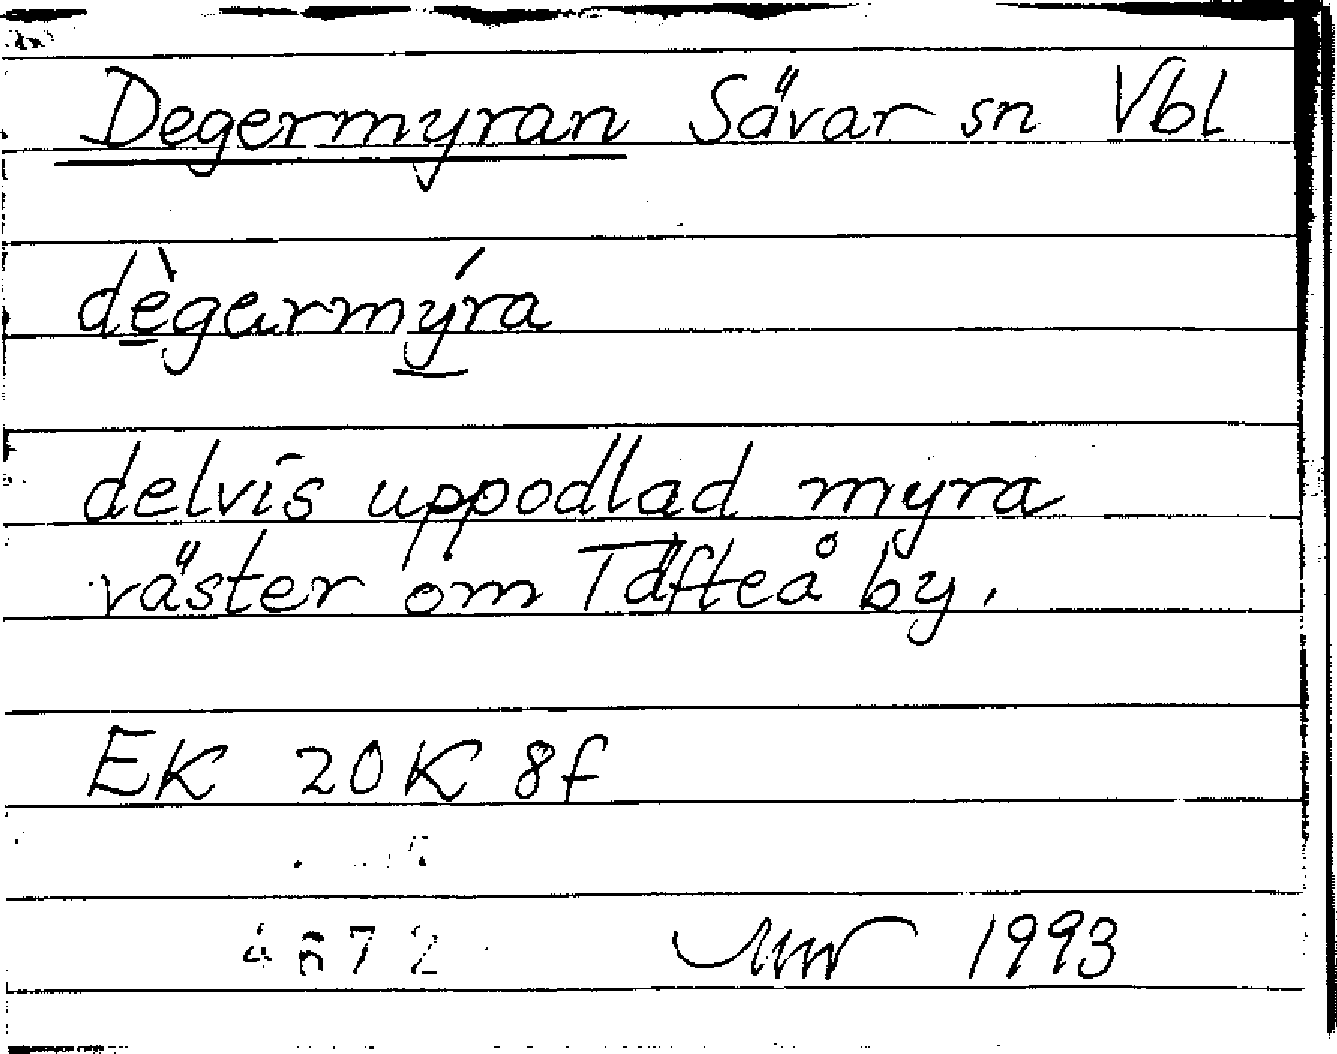 Degermyran Sävar sn Vbl
dègarmýra
delvis uppodlad myra
väster om Täfteå by.
EK 20K 8f
1993